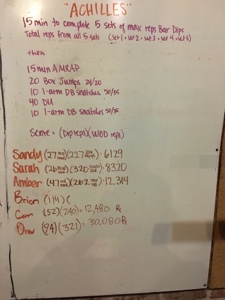 "ACHILLES"
15 min to complete 5 sets of max reps Bar Dips
Total reps from all 5 sets (Set 1 + Set 2 + Set 3 + Set 4 + Set 5)
then
15 min AMRAP
20 Box Jumps
10 1-arm DB Snatches
40 DU
10 1-arm DB Snatches
Score = (Dip reps)(WOD reps)
Sandy (27)(227) = 6129
Sarah (26)(320) = 8320
Amber (47)(262) = 12,314
Brian (114)(
(52)(240) = 12,480 R
Drew (94)(321) = 30,080 R